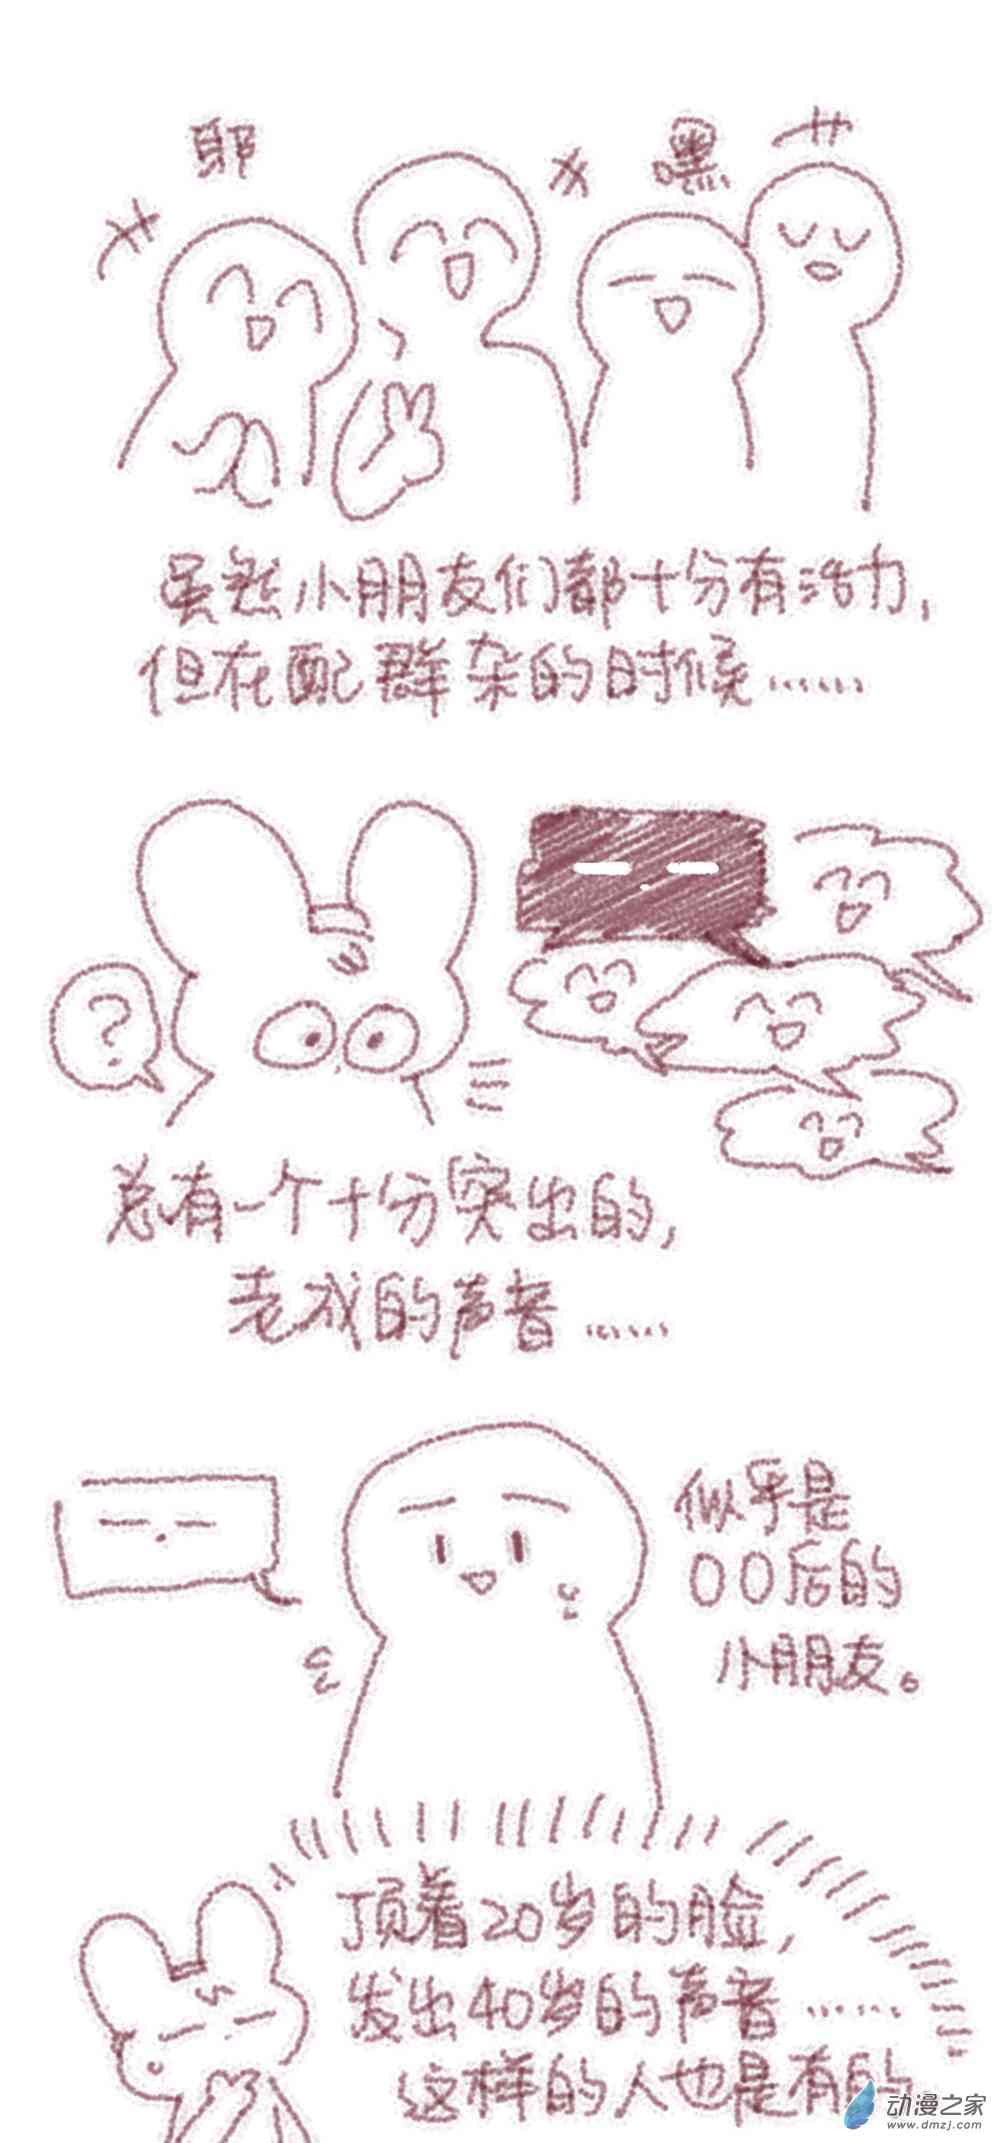 耶
嘿
虽然小朋友们都十分有活力，
但在配群杂的时候……
？
总有一个十分突出的，
老成的声音……
似乎是
00后的
小朋友。
顶着20岁的脸，
发出40岁的声音……
这样的人也是有的
动漫之家
www.dmzj.com